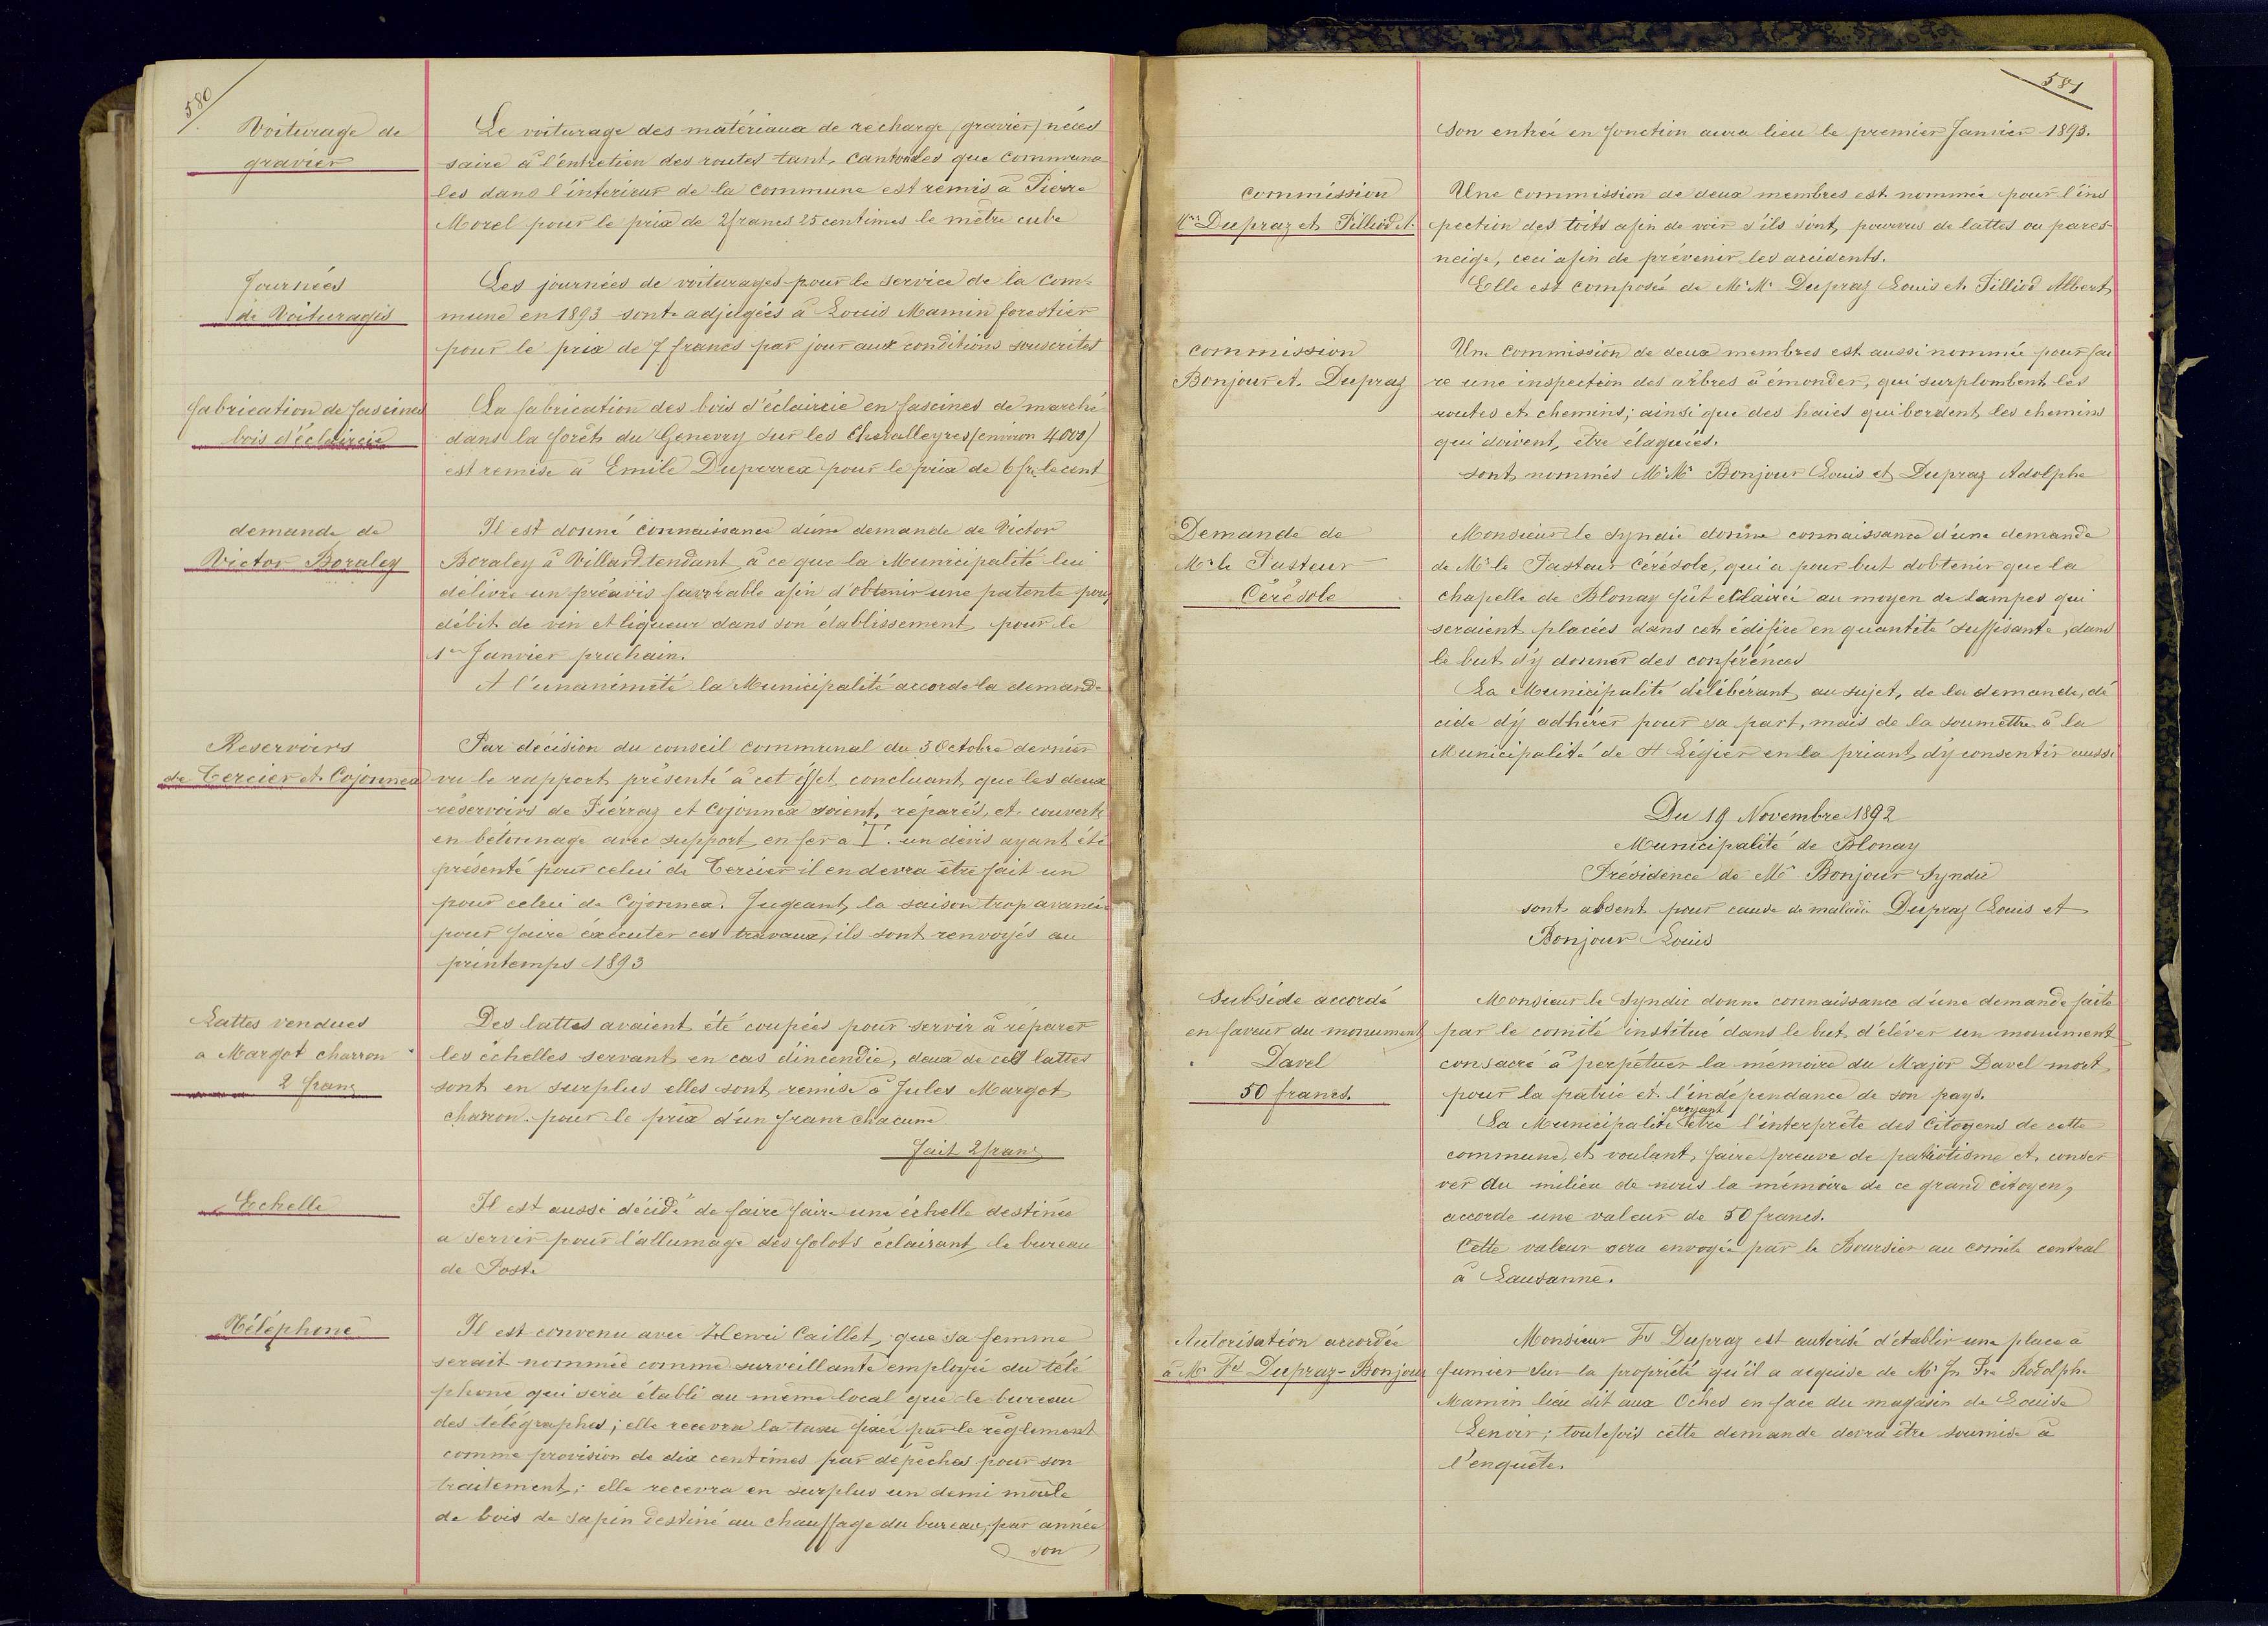 580
Voiturage de
gravier
Le voiturage des matériaux de recharge (gravier) néces
saire à l'entretien des routes tant, cantonales que communa
les dans l'intérieur de la commune est remis à Pierre
Morel pour le prix de 2 francs 25 centimes le mètre cube
Journées
de Voiturages
Les journées de voiturages pour le service de la com-
mune en 1893 sont adjugées à Louis Mamin forestier
pour le prix de 7 francs par jour aux conditions souscrites
fabrication de fascines
bois d'éclaircie
La fabrication des bois d'éclaircie en fascines de marché
dans la forêt du Genevry sur les Chevalleyres (environ 4000)
est remise à Emile Duperrex pour le prix de 6 fr. le cent
demande de
Victor Boraley
Il est donné connaissance d'une demande de Victor
Boraley à Villard tendant, à ce que la Municipalité lui
délivre un préavis favorable afin d'obtenir une patente pour
débit de vin et liqueur dans son établissement pour le
1er Janvier prochain.
A l'unanimité la Municipalité accorde la demande
Reservoirs
de Tercier et Cojonnex
Par décision du conseil communal du 3 Octobre dernier
vu le rapport présenté à cet effet concluant, que les deux
réservoirs de Pierraz et Cojonnex soient, réparés, et couverts
en bétonnage avec support en fer à T. un dévis ayant été
présenté pour celui de Tercier il en devra être fait un
pour celui de Cojonnex. Jugeant, la saison trop avancée
pour faire éxécuter ces travaux, ils sont renvoyés au
printemps 1893
Lattes vendues
a Margot charron
2 franc
Des lattes avaient été coupées pour servir à réparer
les échelles servant en cas d'incendie, deux de ces lattes
sont en surplus elles sont remise à Jules Margot
charron pour le prix d'un franc chacune
fait 2 franc
Echelle
Il est aussi décidé de faire faire une échelle destinée
a servir pour l'allumage des falots éclairant le bureau
de Poste
Téléphone
Il est convenu avec Henri Caillet, que sa femme
serait nommée comme surveillante employée du télé
phone qui sera établi au même local que le bureau
des télégraphes; elle recevra la taxe fixée par le règlement
comme provision de dix centimes par dépêches pour son
traitement; elle recevra en surplus un demi moule
de bois de sapin destiné au chauffage du bureau, par année
son
581
Son entrée en fonction aura lieu le premier Janvier 1893.
commission
Mrs Dupraz et Pilliod A.
Une commission de deux membres est nommée pour l'ins
pection des toits afin de voir s'ils sont, pourvus de lattes ou pares-
neige, ceci afin de prévenir les accidents.
Elle est composée de Mr Mr Dupraz Louis et Pilliod Albert
commission
Bonjour et. Dupraz
Une commission de deux membres est aussi nommée pour fai
re une inspection des arbres à émonder, qui surplombent les
routes et chemins; ainsi que des haies qui bordent les chemins
qui doivent, être élaguées.
sont nommés Mr Mr Bonjour Louis et Dupraz Adolphe
Demande de
Mr le Pasteur
Cérésole
Monsieur le Syndic donne connaissance d'une demande
de Mr le Pasteur Cérésole, qui a pour but d'obtenir que la
chapelle de Blonay fût éclairée au moyen de lampes qui
seraient placées dans cet édifice en quantité suffisante, dans
le but d'y donner des conférences
La Municipalité délibérant, au sujet, de la demande, dé
cide d'y adhérer pour sa part, mais de la soumettre à la
Municipalité de St Légier en la priant d'y consentir aussi
Du 19 Novembre 1892
Municipalité de Blonay
Présidence de Mr Bonjour Syndic
sont absent pour cause de maladie Dupraz Louis et
Bonjour Louis
Subside accordé
en faveur du monument
Davel
50 francs.
Monsieur le Syndic donne connaissance d'une demande faite
par le comité institué dans le but d'élever un monument
consacré à perpétuer la mémoire du Major Davel mort,
pour la patrie et l'indépendance de son pays.
croyant
La Municipalité être l'interprète des citoyens de cette
commune, et voulant, faire preuve de patriotisme et, conser
ver au milieu de nous la mémoire de ce grand citoyen,
accorde une valeur de 50 francs.
Cette valeur sera envoyée par le Boursier au comité central
à Lausanne.
Autorisation accordée
à Mr Fs Dupraz-Bonjour
Monsieur Fs Dupraz est autorisé d'établir une place à
fumier sur la propriété qu'il a acquise de Mr Jn Fre Rodolphe
Mamin lieu dit aux Oches en face du magasin de Louise
Lenoir; toutefois cette demande devra être soumise à
l'enquête.